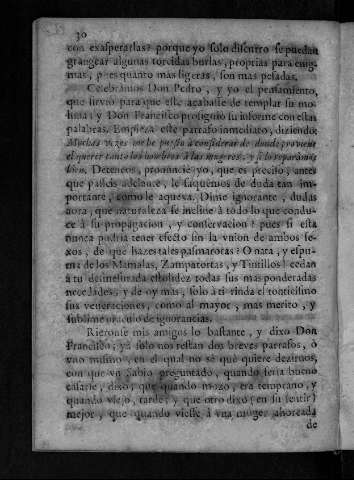 30
con exasperarlas? porque yo solo discurro se puedan
grangear algunas torcidas burlas, proprias para enig-
mas, pues quanto más ligeras, son mas pesadas.
Celebramos Don Pedro, y yo el pensamiento,
que sirviò para que este acabasse de templar su mo-
hina; y Don Francisco prosiguiò su informe con estas
palabras. Empieza este parrafo inmediato, diziendo:
Muchas vezes me he puesto à considerar de donde proviene
el querer tanto los hombres à las mugeres, y si lo reparamos
bien. Deteneos, pronunciè yo, que es preciso, antes
que passeis adelante, le saquemos de duda tan im-
portante, como le aquexa. Dime ignorante, dudas
aora, que naturaleza se incline à todo lo que condu-
ce à su propagacion, y conservacion? pues si esta
nunca podria tener efecto sin la vnion de ambos se-
xos, de que hazes tales pasmarotas? O nata, y espu-
ma de los Mamalas, Zampatortas, y Tutillos! cedan
à tu desmesurada estolidez todas sus mas ponderadas
necedades, y de oy màs, solo à ti rinda el tontissimo
sus veneraciones, como al mayor, mas merito, y
sublime oraculo de ignorancias.
Rieronse mis amigos lo bastante, y dixo Don
Francisco; yà solo nos restan dos breves parrafos, ò
vno mismo, en el qual no sè què quiere dezirnos,
con que vn Sabio preguntado, quando seria bueno
casarse, dixo; que quando mozo, era temprano, y
quando viejo, tarde; y que otro dixo (en su sentir)
mejor, que quando viesse à vna muger ahorcada
de